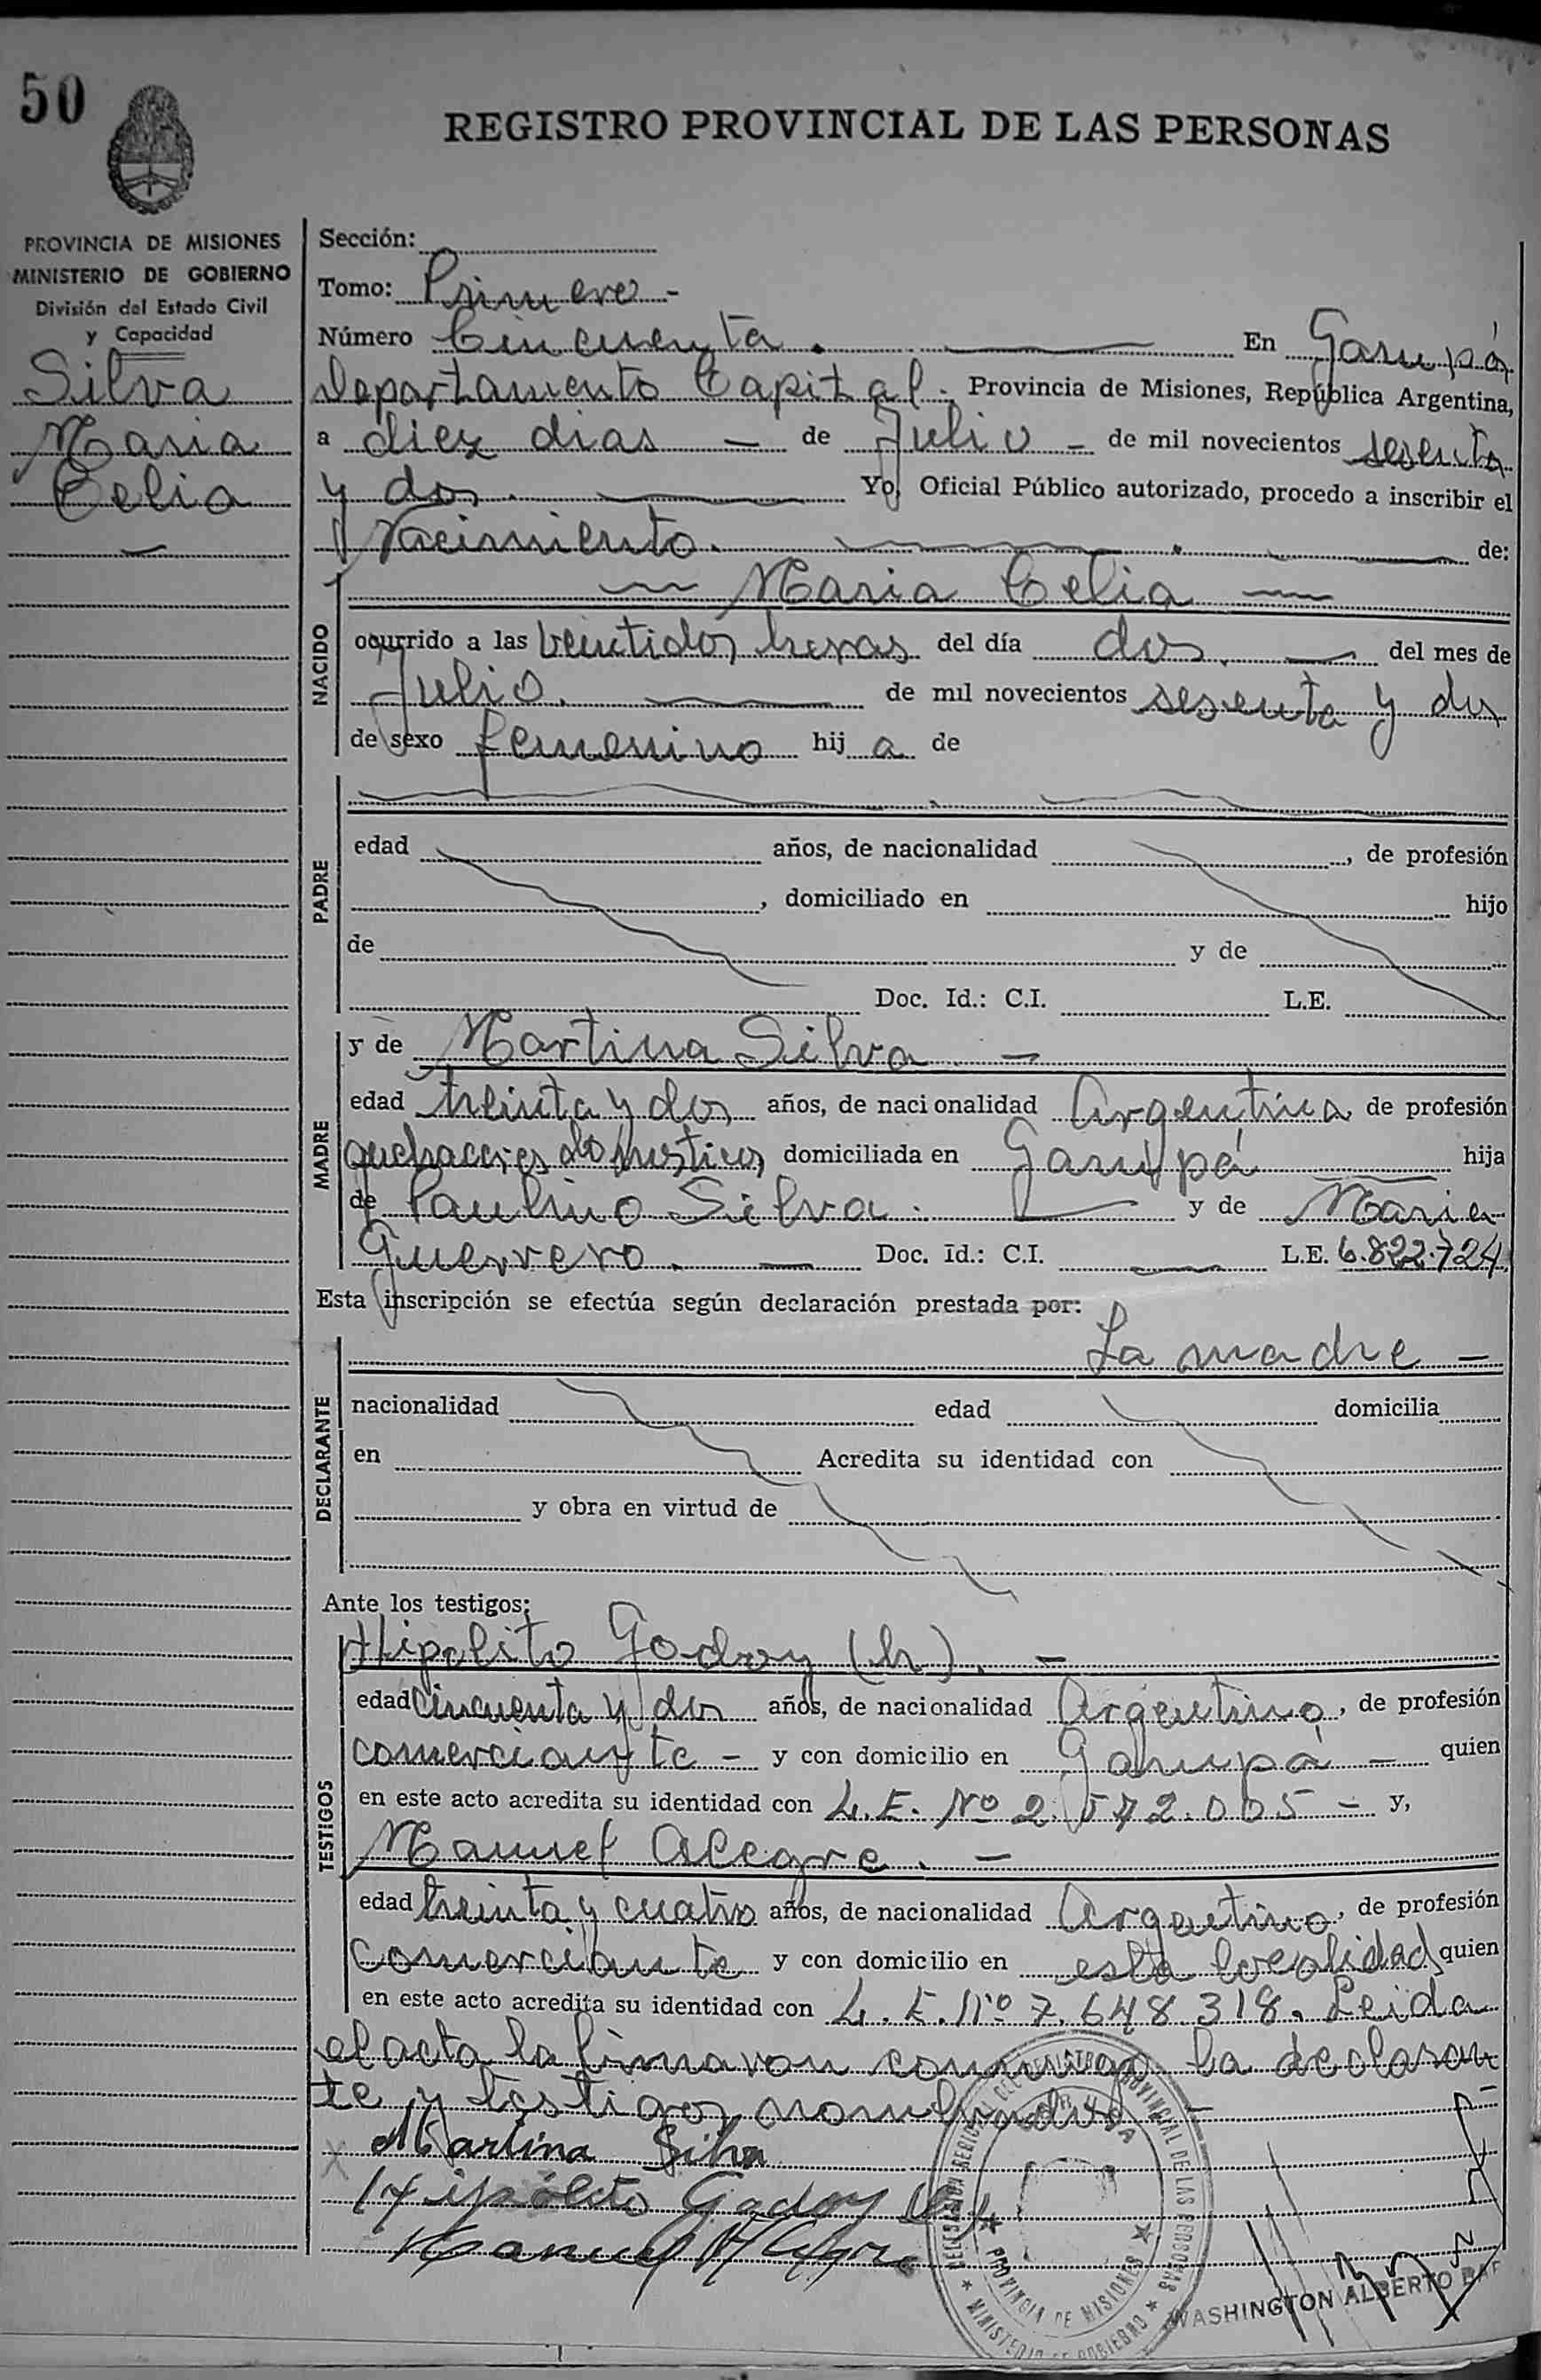 50
REGISTRO PROVINCIAL DE LAS PERSONAS
PROVINCIA DE MISIONES
MINISTERIO DE GOBIERNO
División del Estado Civil
y Capacidad
Silva
Maria
Celia
Sección:
Tomo: Primero -
Número Cincuenta. En Garupá
Departamento Capital. Provincia de Misiones, República Argentina,
a diez dias - de Julio - de mil novecientos sesenta
y dos. Yo, Oficial Público autorizado, procedo a inscribir el
Nacimiento. de:
NACIDO
Maria Celia
ocurrido a las veintidos horas del día dos. del mes de
Julio. de mil novecientos sesenta y dos
de sexo femenino hija de
PADRE
edad años, de nacionalidad , de profesión
, domiciliado en hijo
de y de
Doc. Id.: C.I. L.E.
MADRE
y de Martina Silva -
edad treinta y dos años, de nacionalidad Argentina de profesión
quehaceres domesticos domiciliada en Garupá hija
de Paulino Silva. y de Maria
Guerrero. Doc. Id.: C.I. L.E. 6.822.724
Esta inscripción se efectúa según declaración prestada por:
La madre -
DECLARANTE
nacionalidad edad domicilia
en Acredita su identidad con
y obra en virtud de
Ante los testigos:
TESTIGOS
Hipolito Godoy (h). -
edad cincuenta y dos años, de nacionalidad Argentino, de profesión
comerciante - y con domicilio en Garupá - quien
en este acto acredita su identidad con L.E. Nº 2.572.005 - y,
Manuel Alegre. -
edad treinta y cuatro años, de nacionalidad Argentino, de profesión
comerciante y con domicilio en esta localidad quien
en este acto acredita su identidad con L.E. Nº 7.648.318. Leida
el acta la firmaron conmigo la declaran
te y testigos nombrados -
Martina Silva
Hipólito Godoy (h)
Manuel Alegre
DELEGACION REGIONAL DEL REGISTRO PROVINCIAL DE LAS PERSONAS
PROVINCIA DE MISIONES
MINISTERIO DE GOBIERNO
WASHINGTON ALBERTO